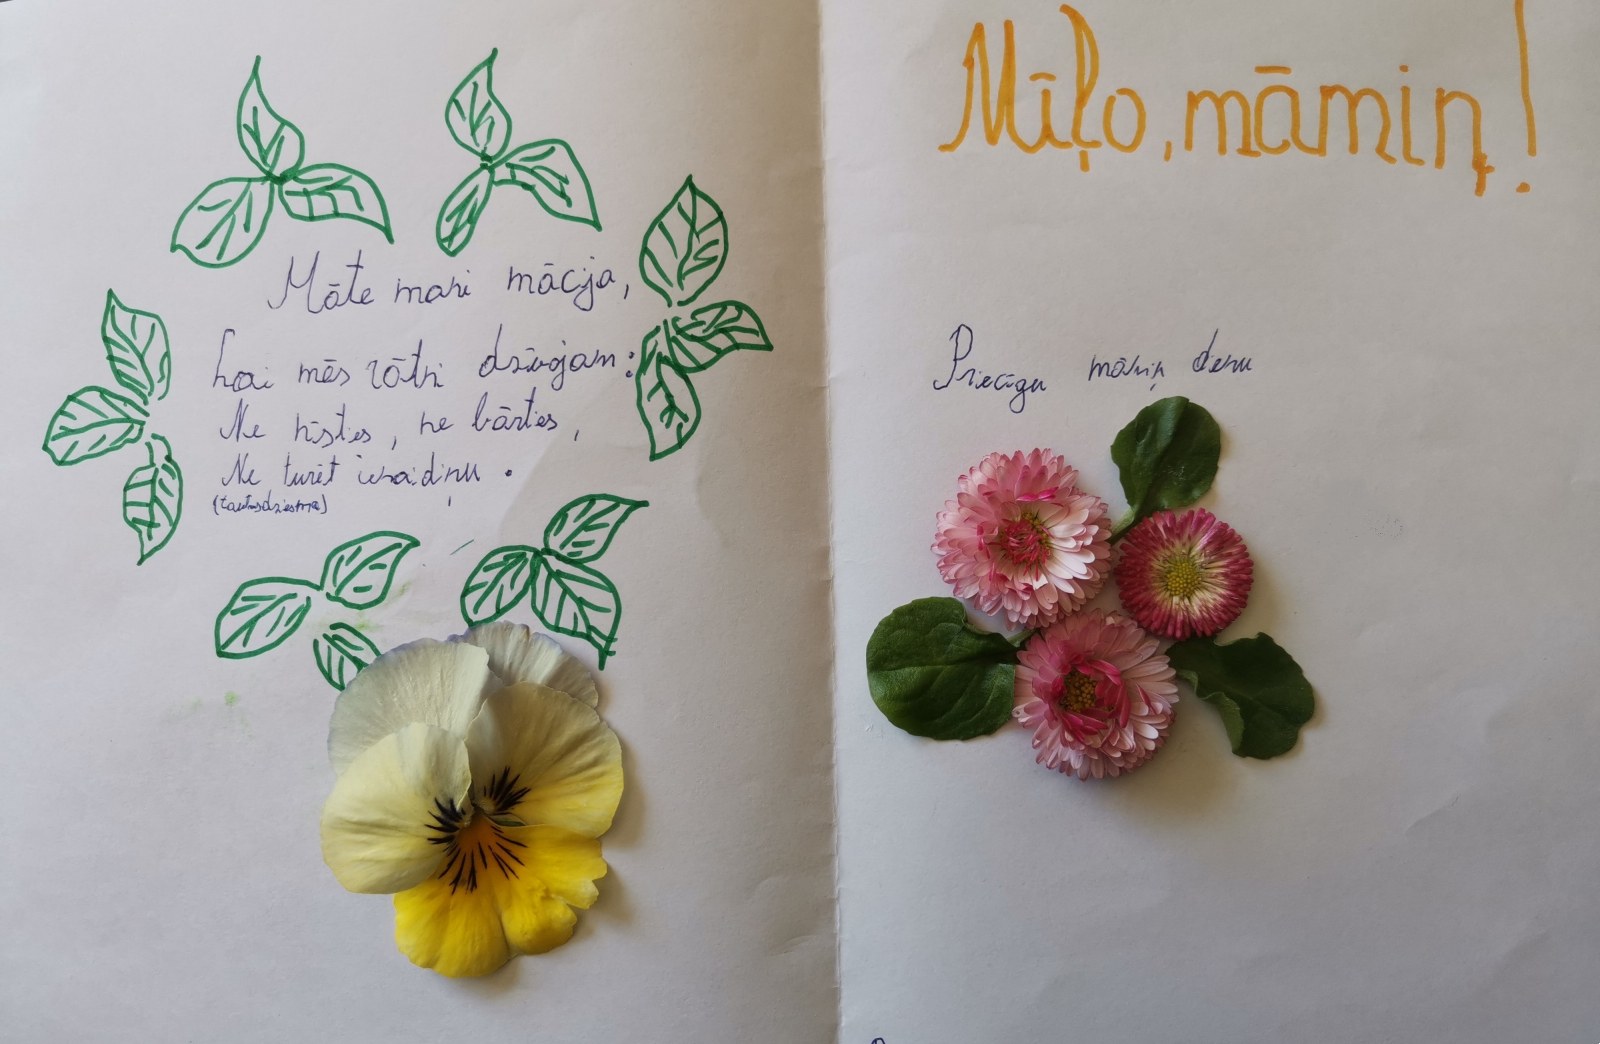 Māte mani mācija,
Lai mēs rātni dzīvojam:
Ne nīsties, ne bārties,
Ne turēt ienaidiņu.
(tautasdziesma)
Mīļo, māmiņ!
Priecīgu māmiņ dienu